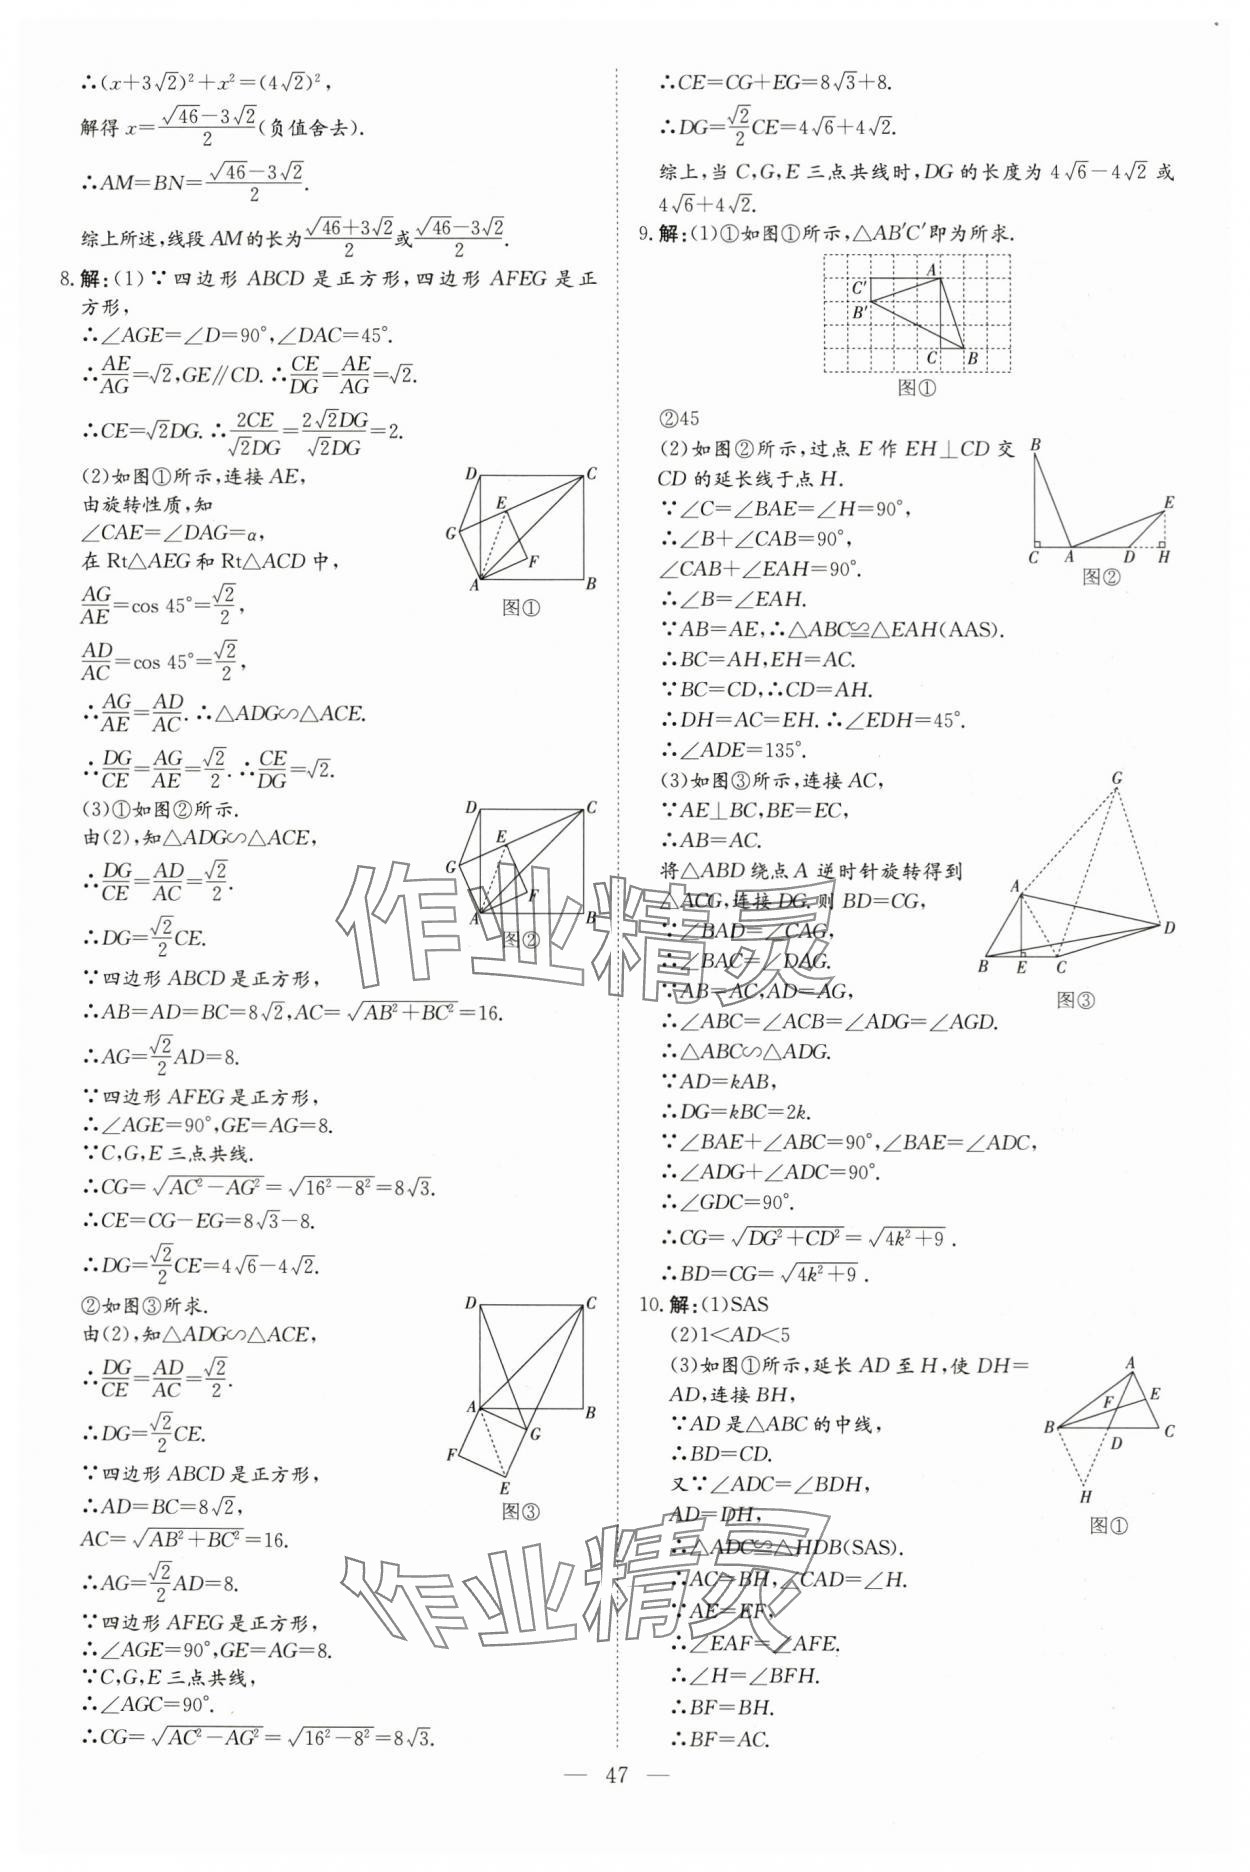 ∴(x+3√2)²+x²=(4√2)²,
解得 x=(√46-3√2)/2(负值舍去).
∴AM=BN=(√46-3√2)/2.
综上所述,线段 AM 的长为(√46+3√2)/2或(√46-3√2)/2.
8.解:(1)∵四边形 ABCD 是正方形,四边形 AFEG 是正
方形,
∴∠AGE=∠D=90°,∠DAC=45°.
∴AE/AG=√2,GE∥CD.∴CE/DG=AE/AG=√2.
∴CE=√2DG.∴2CE/√2DG=2√2DG/√2DG=2.
(2)如图①所示,连接 AE,
由旋转性质,知
∠CAE=∠DAG=α,
在 Rt△AEG 和 Rt△ACD 中,
AG/AE=cos 45°=√2/2,
AD/AC=cos 45°=√2/2,
∴AG/AE=AD/AC.∴△ADG∽△ACE.
∴DG/CE=AG/AE=√2/2.∴CE/DG=√2.
D C E G F A B
图①
(3)①如图②所示.
由(2),知△ADG∽△ACE,
∴DG/CE=AD/AC=√2/2.
∴DG=√2/2CE.
D C E G F A B
图②
∵四边形 ABCD 是正方形,
∴AB=AD=BC=8√2,AC=√(AB²+BC²)=16.
∴AG=√2/2AD=8.
∵四边形 AFEG 是正方形,
∴∠AGE=90°,GE=AG=8.
∵C,G,E 三点共线.
∴CG=√(AC²-AG²)=√(16²-8²)=8√3.
∴CE=CG-EG=8√3-8.
∴DG=√2/2CE=4√6-4√2.
②如图③所求.
由(2),知△ADG∽△ACE,
∴DG/CE=AD/AC=√2/2.
∴DG=√2/2CE.
∵四边形 ABCD 是正方形,
∴AD=BC=8√2,
AC=√(AB²+BC²)=16.
D C A B G F E
图③
∴AG=√2/2AD=8.
∵四边形 AFEG 是正方形,
∴∠AGE=90°,GE=AG=8.
∵C,G,E 三点共线,
∴∠AGC=90°.
∴CG=√(AC²-AG²)=√(16²-8²)=8√3.
∴CE=CG+EG=8√3+8.
∴DG=√2/2CE=4√6+4√2.
综上,当 C,G,E 三点共线时,DG 的长度为 4√6-4√2 或
4√6+4√2.
9.解:(1)①如图①所示,△AB′C′即为所求.
A C′ B′ C B
图①
②45
(2)如图②所示,过点 E 作 EH⊥CD 交
CD 的延长线于点 H.
∵∠C=∠BAE=∠H=90°,
∴∠B+∠CAB=90°,
∠CAB+∠EAH=90°.
∴∠B=∠EAH.
B E C A D H
图②
∵AB=AE,∴△ABC≌△EAH(AAS).
∴BC=AH,EH=AC.
∵BC=CD,∴CD=AH.
∴DH=AC=EH.∴∠EDH=45°.
∴∠ADE=135°.
(3)如图③所示,连接 AC,
∵AE⊥BC,BE=EC,
∴AB=AC.
将△ABD 绕点 A 逆时针旋转得到
△ACG,连接 DG.则 BD=CG,
∵∠BAD=∠CAG,
∴∠BAC=∠DAG.
∵AB=AC,AD=AG,
G A D B E C
图③
∴∠ABC=∠ACB=∠ADG=∠AGD.
∴△ABC∽△ADG.
∵AD=kAB,
∴DG=kBC=2k.
∵∠BAE+∠ABC=90°,∠BAE=∠ADC,
∴∠ADG+∠ADC=90°.
∴∠GDC=90°.
∴CG=√(DG²+CD²)=√(4k²+9).
∴BD=CG=√(4k²+9).
10.解:(1)SAS
(2)1<AD<5
(3)如图①所示,延长 AD 至 H,使 DH=
AD,连接 BH,
∵AD 是△ABC 的中线,
∴BD=CD.
又∵∠ADC=∠BDH,
AD=DH,
A E F B D C H
图①
∴△ADC≌△HDB(SAS).
∴AC=BH,∠CAD=∠H.
∵AE=EF,
∴∠EAF=∠AFE.
∴∠H=∠BFH.
∴BF=BH.
∴BF=AC.
作业精灵
作业精灵
— 47 —